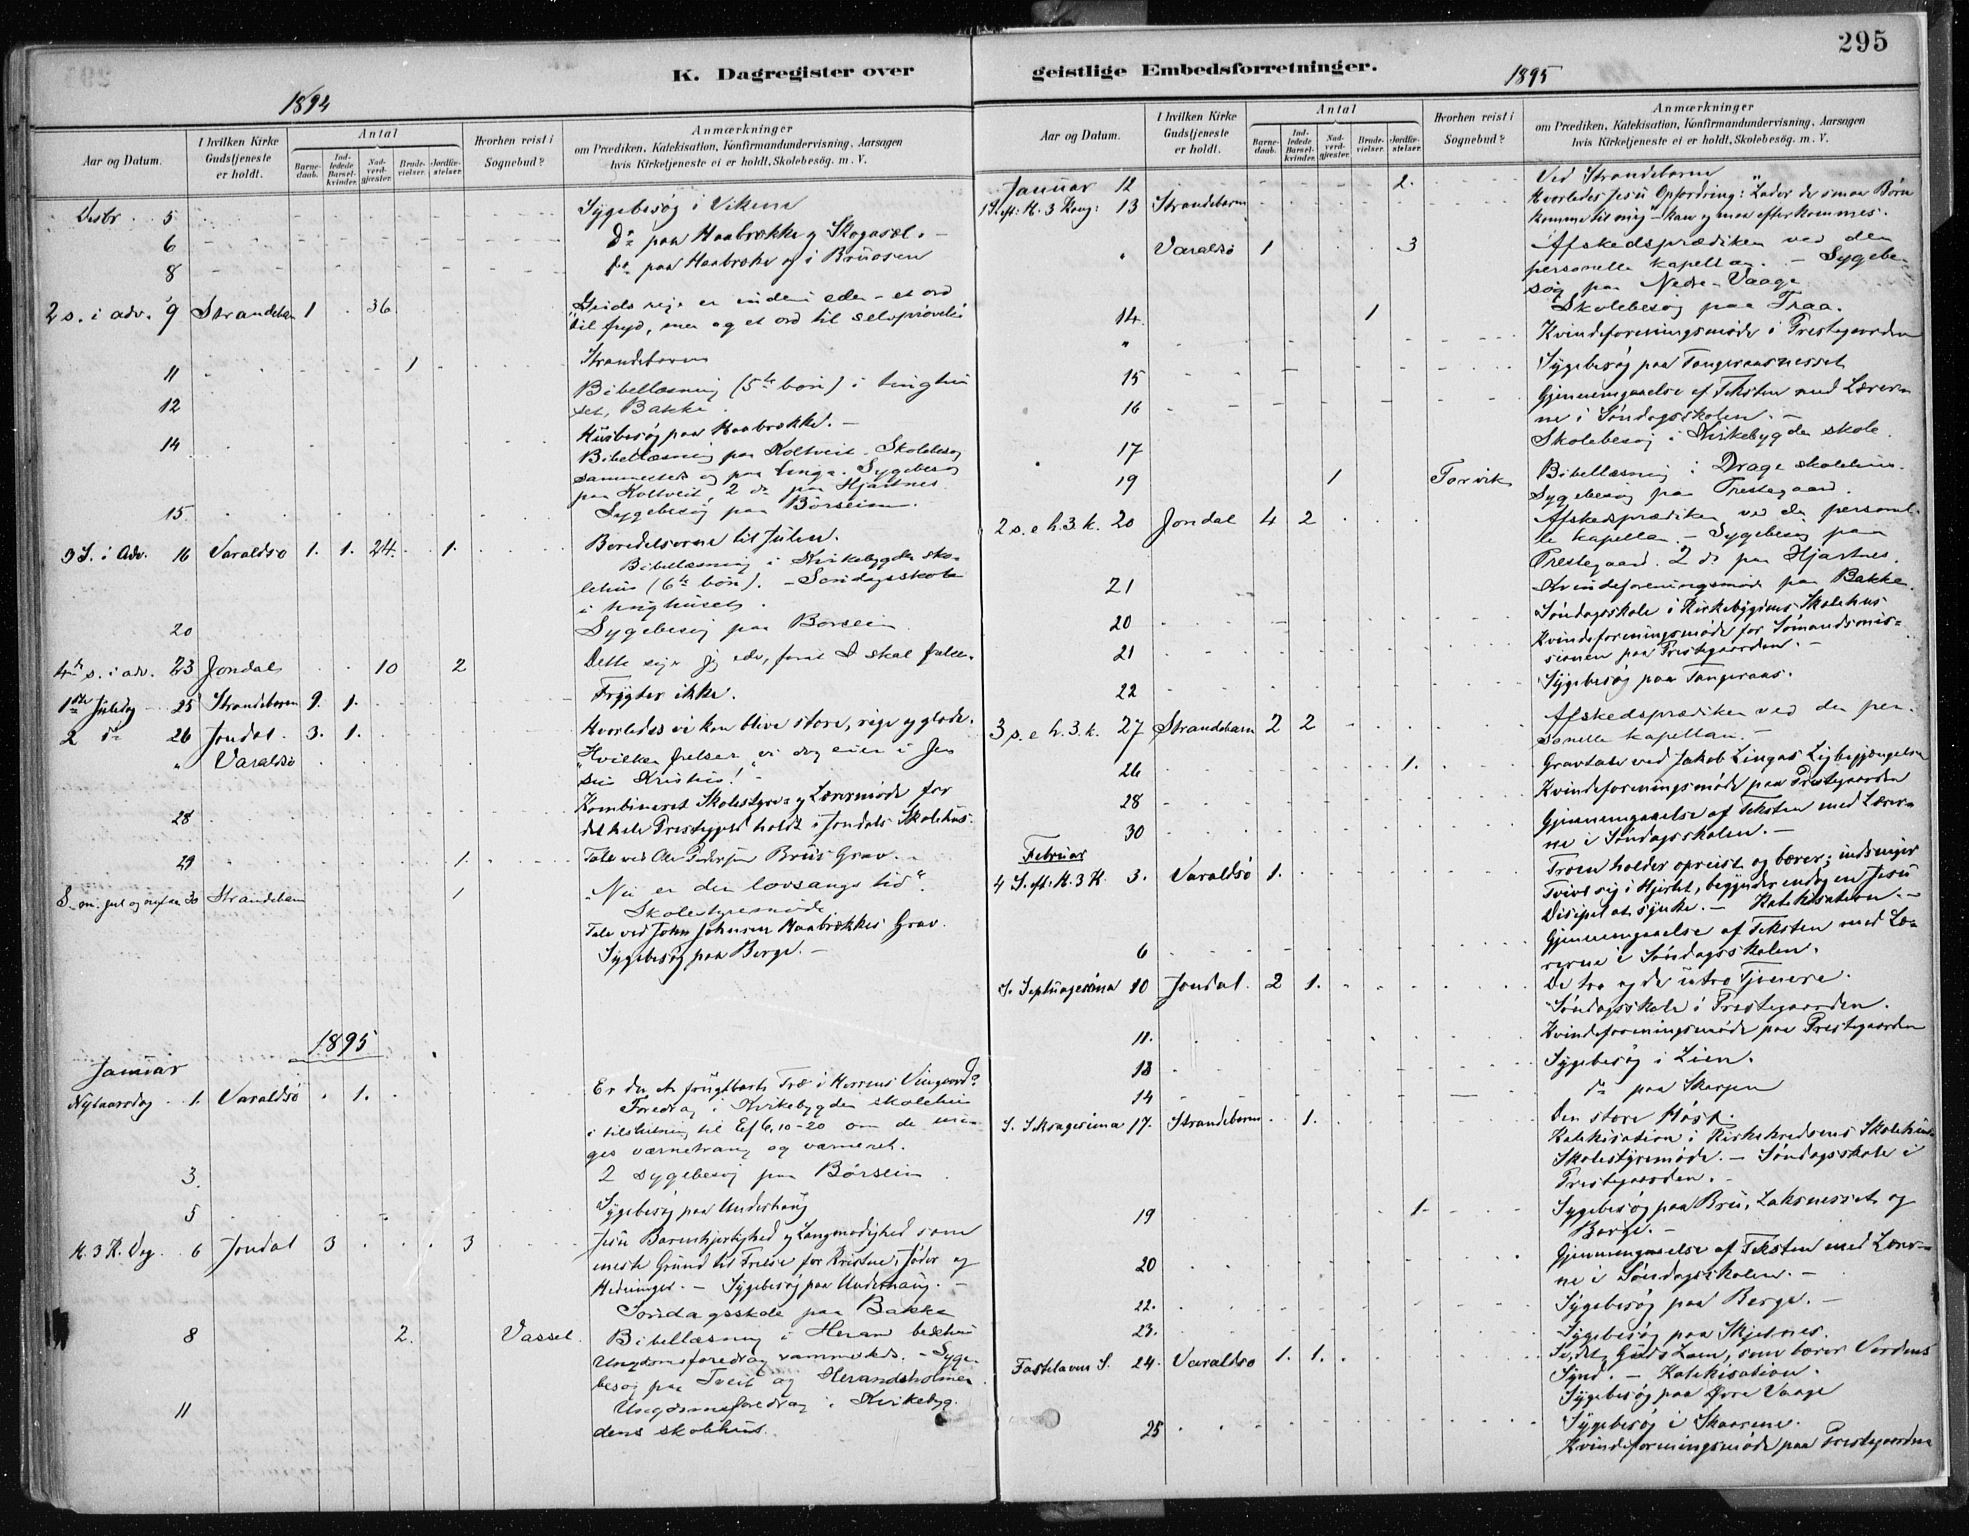 295
K. Dagregister over geistlige Embedsforretninger.
1894
Aar og Datum.
I hvilken Kirke Gudstjeneste er holdt.
Antal
Barnedaab.
Indledede Barselkvinder.
Nadverdgjester.
Brudevielser.
Jordfæstelser.
Hvorhen reist i Sognebud?
Anmærkninger
om Prædiken, Katekisation, Konfirmandundervisning, Aarsagen
hvis Kirketjeneste ei er holdt, Skolebesøg. m. V.
Desbr. 5 Sygebesøg i Vikene
6 Do paa Haabrække og Skogasæl.
8 Do paa Haabrække og i Bruosen
2 s. i adv. 9 Strandebarm 1 36 Guds rige er inden i eder - et ord
til fryd, men og et ord til selvprøvelse
11 1 Strandebarm
12 Bibellæsning (5te bøn) i tinghu
set, Bakke.
14 Husbesøg paa Haabrække. -
Bibellæsning paa Koltveit. Skolebesøg
sammesteds og paa Linga. Sygebesøg
paa Koltveit, 2 do paa Hjartnes.
15. Sygebesøg paa Børseim.
3 S. i Adv. 16 Varaldsø 1. 1. 24. 1. Beredelserne til Julen.
Bibellæsning i Kirkebygdens sko-
lehus (6te bøn). - Søndagsskole
i tinghuset.
20 Sygebesøg paa Børseim
4de s. i adv. 23 Jondal 10 2 Dette siger jeg eder, forat I skal
1ste Juledag 25 Strandebarm 9. 1. Frygter ikke.
2 do 26 Jondal. 3. 1. Hvorledes vi kan blive store, rige og glade.
" Varaldsø Hvilken frelser vi dog eier i Je
su Kristus!
28 Kombineret Skolestyre- og Lærermøde for
det hele Prestegjeld holdt i Jondals Skolehus.
29 1. Tale ved Ole Pedersen Brus Grav.
S. m. jul og nytaar 30 Strandebarm 1 "Nu er den lovsangs tid".
Skolestyremøde
Tale ved John Johnsen Haabrækkes Grav.
Sygebesøg paa Berge. -
1895
Januar
Nytaarsdag 1. Varaldsø 1. Er du et frugtbart Træ i Herrens Vingaard?
Foredrag i Kirkebygdens skolehus
i tilslutning til Ef 6, 10-20 om de un-
ges værnetrang og værneret.
3. 2 sygebesøg paa Børseim
5 Sygebesøg paa Underhaug
H. 3 K. Dag. 6 Jondal 3 3 Jesu Barmhjertighed og Langmodighed som
eneste Grund til Frelse for Kristne, Jøder og
Hedninger. - Sygebesøg paa Underhaug. -
Søndagsskole paa Bakke
8 2. Vassel. Bibellæsning i Herand bedehus
Ungdomsforedrag sammesteds. - Syge-
besøg paa Tveit og Herandsholmen
11 Ungdomsforedrag i Kirkebyg-
dens skolehus.
1895
Aar og Datum.
I hvilken Kirke Gudstjeneste er holdt.
Antal
Barnedaab.
Indledede Barselkvinder.
Nadverdgjester.
Brudevielser.
Jordfæstelser.
Hvorhen reist i Sognebud?
Anmærkninger
om Prædiken, Katekisation, Konfirmandundervisning, Aarsagen
hvis Kirketjeneste ei er holdt, Skolebesøg. m. V.
Januar 12 2. Ved Strandebarm
1 S. eft. H. 3 Kong: 13 Strandebarm Hvorledes Jesu Opfordring: "Lader de smaa Børn
komme til mig" - kan og maa efterkommes.
" Varaldsø 1 3 Afskedsprædiken ved den
personelle kapellan. - Sygebe-
søg paa Nedre-Vaage
14. 1 Skolebesøg paa Traa.
" Kvindeforeningsmøde i Prestegaarden
15 Sygebesøg paa Tangeraasnesset
16 Gjennemgaaelse af Teksten med Lærer-
ne i Søndagsskolen. -
17 Skolebesøg i Kirkebygdens skole.
19 1 Torvik Bibellæsning i Drage skolehus.
Sygebesøg paa Prestegaard.
2 s. e h. 3 k. 20 Jondal 4 2 Afskedsprædiken ved den personel-
le kapellan. - Sygebesøg paa
Prestegaard. 2 do paa Hjartnes.
21 Kvindeforeningsmøde paa Bakke.
20 Søndagsskole i Kirkebygdens Skolehus
21 Kvindeforeningsmøde for Sømandsmis-
sionen paa Prestegaarden. -
22 Sygebesøg paa Tangeraas.
3 s. e h. 3. k. 27 Strandebarm 2 2 Afskedsprædiken ved den per-
sonelle kapellan. -
26 1. Gravtale ved Jakob Lingas Ligbegjængelse
28 Kvindeforeningsmøde paa Prestegaarden
30 Gjennemgaaelse af Teksten med Lærer-
ne i Søndagsskolen. -
Februar
4 S. eft. H. 3 K. 3. Varaldsø 1. Troen holder opreist og bærer; indsniger
Tvivl sig i Hjertet, begynder endog en Jesu
Discipel at synke. - Katekisation. -
6 Gjennemgaaelse af Teksten med Læ-
rerne i Søndagsskolen.
S. Septuagesima 10 Jondal. 2 1. De tro og de utro Tjenere.
Søndagsskole i Prestegaarden.
11. Kvindeforeningsmøde paa Prestegaarden
13 Sygebesøg i Lien.
14 do paa Skorpen
S. Seksagesima 17. Strandebarm 1. Den store Høst.
Katekisation i Kirkekredsens Skolehus
Skolestyremøde. - Søndagsskole i
Prestegaarden. -
19 1. Sygebesøg paa Bru, Laksnesset og
Berge. -
20 Gjennemgaaelse af Teksten med Lærer-
ne i Søndagsskolen. -
22. Sygebesøg paa Berge. -
23. Sygebesøg paa Skjelnes.
Fastelavns S. 24. Varaldsø 1. 1. Se, det Guds Lam, som bærer Verdens
Synd. - Katekisation.
Sygebesøg paa Øvre Vaage
Sygebesøg i Skaarene.
25 Kvindeforeningsmøde paa Prestegaarden